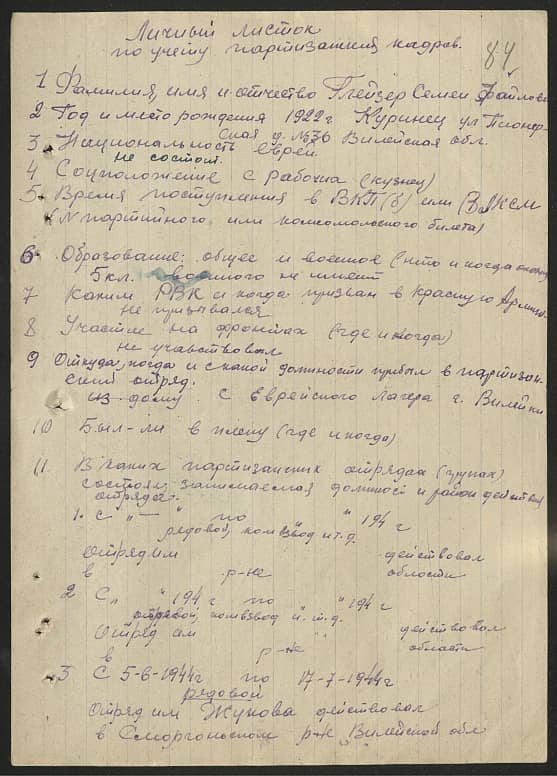 Личный листок
по учету партизанских кадров.
84
1 Фамилия, имя и отчество Глейзер Семен Файлов
2 Год и место рождения 1922 г Куринец ул Пионер-
ская д. №36 Вилейская обл.
3. Национальность еврей.
не состоял.
4 Соцположение с рабочих (кузнец)
5. Время поступления в ВКП(б) или ВЛКСМ
(N партийного или комсомольского билета)
6. Образование: общее и военное (что и когда
5 кл. военного не имеет
7 Каким РВК и когда призван в Красную Армию.
не призывался
8 Участие на фронтах (где и когда)
не учавствовал
9 Откуда, когда и с какой должности прибыл в партизан-
ский отряд.
из дому с Еврейского лагеря г. Вилейки
10 Был-ли в плену (где и когда)
11. В каких партизанских отрядах (групах)
состоял, занимаемая должност и район действия
отряда.
1. с " — " по " 194 г
рядовой, комвзвод и т.д.
отряд им действовал
в р-не области
2 С " " 194 г по " 194 г
рядовой, комвзвод и т.д.
Отряд им " " действовал
в р-не области
3 С 5-6-1944 г по 17-7-1944 г
рядовой
Отряд им Жукова действовал
в Сморгоньском р-не Вилейской обл